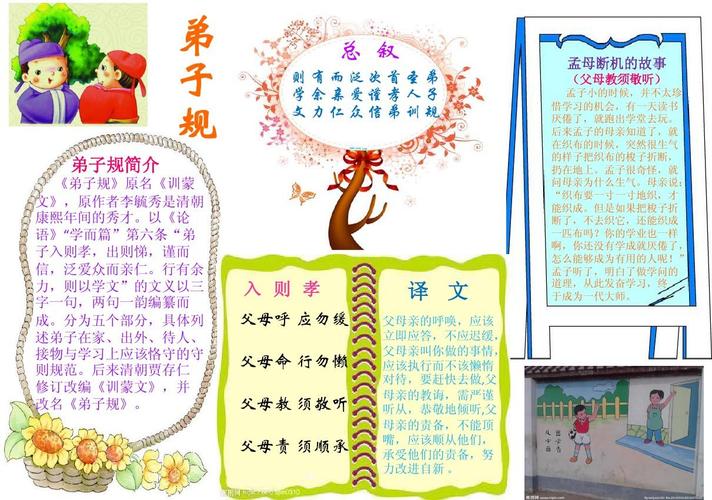 弟子规
总 叙
弟子规
圣人训
首孝弟
次谨信
泛爱众
而亲仁
有余力
则学文
孟母断机的故事
（父母教须敬听）
孟子小的时候，并不太珍
惜学习的机会，有一天读书
厌倦了，就跑出学堂去玩。
后来孟子的母亲知道了，就
在织布的时候，突然很生气
的样子把织布的梭子折断，
扔在地上。孟子很奇怪，就
问母亲为什么生气。母亲说：
“织布要一寸一地织，才
能织成。但是如果把梭子折
断了，不去织它，还能织成
一匹布吗？你的学业也一样
啊，你还没有学成就厌倦了，
怎么能够成为有用的人呢！”
孟子听了，明白了做学问的
道理，从此发奋学习，终
于成为一代大师。
弟子规简介
《弟子规》原名《训蒙
文》，原作者李毓秀是清朝
康熙年间的秀才。以《论
语》“学而篇”第六条“弟
子入则孝，出则悌，谨而
信，泛爱众而亲仁。行有余
力，则以学文”的文义以三
字一句，两句一韵编纂而
成。分为五个部分，具体列
述弟子在家、出外、待人、
接物与学习上应该恪守的守
则规范。后来清朝贾存仁
修订改编《训蒙文》，并
改名《弟子规》。
入 则 孝
父母呼 应勿缓
父母命 行勿懒
父母教 须敬听
父母责 须顺承
译 文
父母亲的呼唤，应该
立即应答，不应迟缓，
父母亲叫你做的事情，
应该执行而不该懒惰
对待，要赶快去做,父
母亲的教诲，需严谨
听从，恭敬地倾听,父
母亲的责备，不能顶
嘴，应该顺从他们，
承受他们的责备，努
力改进自新 。